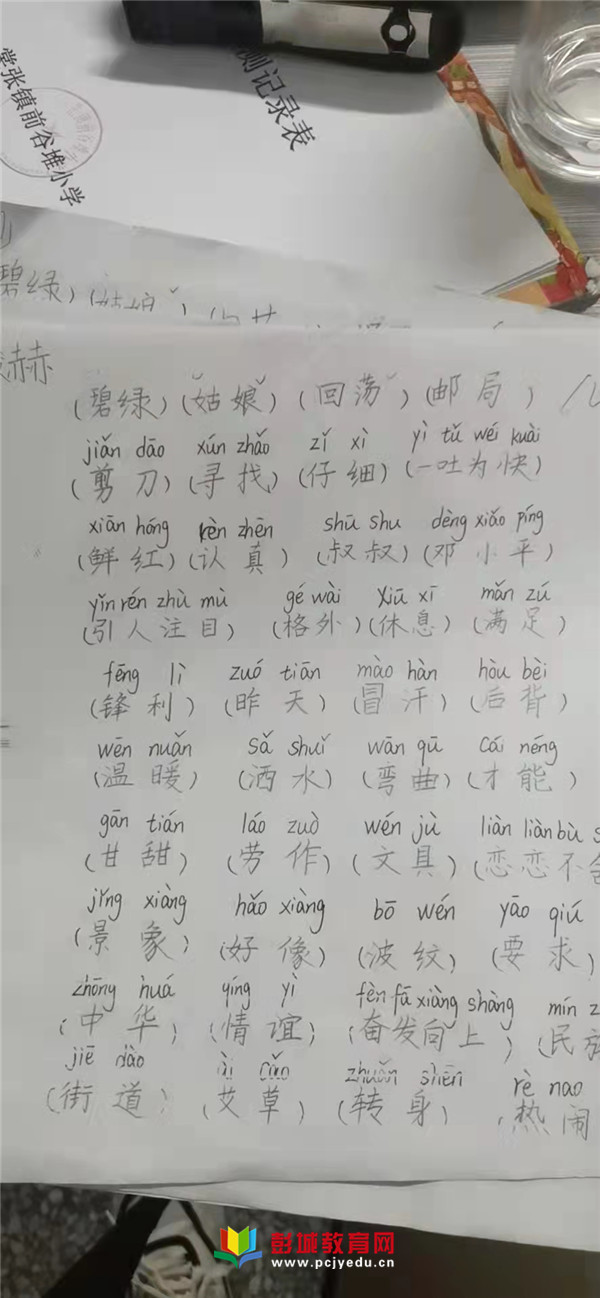 测记录表
堂张镇前谷堆小学
碧绿)(姑娘)
赫
(碧绿)(姑娘)(回荡)(邮局)
jiǎn dāo xún zhǎo zǐ xì yì tǔ wéi kuài
(剪刀)(寻找)(仔细)(一吐为快)
xiān hóng rèn zhēn shū shu dèng xiǎo píng
(鲜红)(认真)(叔叔)(邓小平)
yǐn rén zhù mù gé wài xiū xī mǎn zú
(引人注目)(格外)(休息)(满足)
fēng lì zuó tiān mào hàn hòu bèi
(锋利)(昨天)(冒汗)(后背)
wēn nuǎn sǎ shuǐ wān qū cái néng
(温暖)(洒水)(弯曲)(才能)
gān tián láo zuò wén jù liàn liàn bù s
(甘甜)(劳作)(文具)(恋恋不舍
jǐng xiàng hǎo xiàng bō wén yāo qiú
(景象)(好像)(波纹)(要求)
zhōng huá qíng yì fèn fā xiàng shàng mín z
(中华)(情谊)(奋发向上)(民族
jiē dào ài cǎo zhuǎn shēn rè nao
(街道)(艾草)(转身)(热闹
彭城教育网
www.pcjyedu.cn